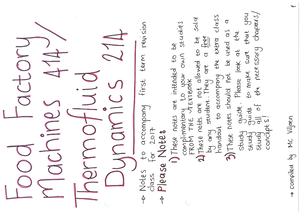 Food Factory
Machines 414/
Thermofluid
Dynamics 214
→ Notes to accompany first term revision
class for 2017
→ Please Note:
1) These notes are intended to be
complimentary to your own studies
FROM THE TEXTBOOK!
2) These notes are not allowed to be sold
by any student. They are a free
handout to accompany the extra class
3) These notes should not be used as a
study guide. Please look at the
study guide to make sure that you
study all of the necessary chapters/
concepts!
→ compiled by MC